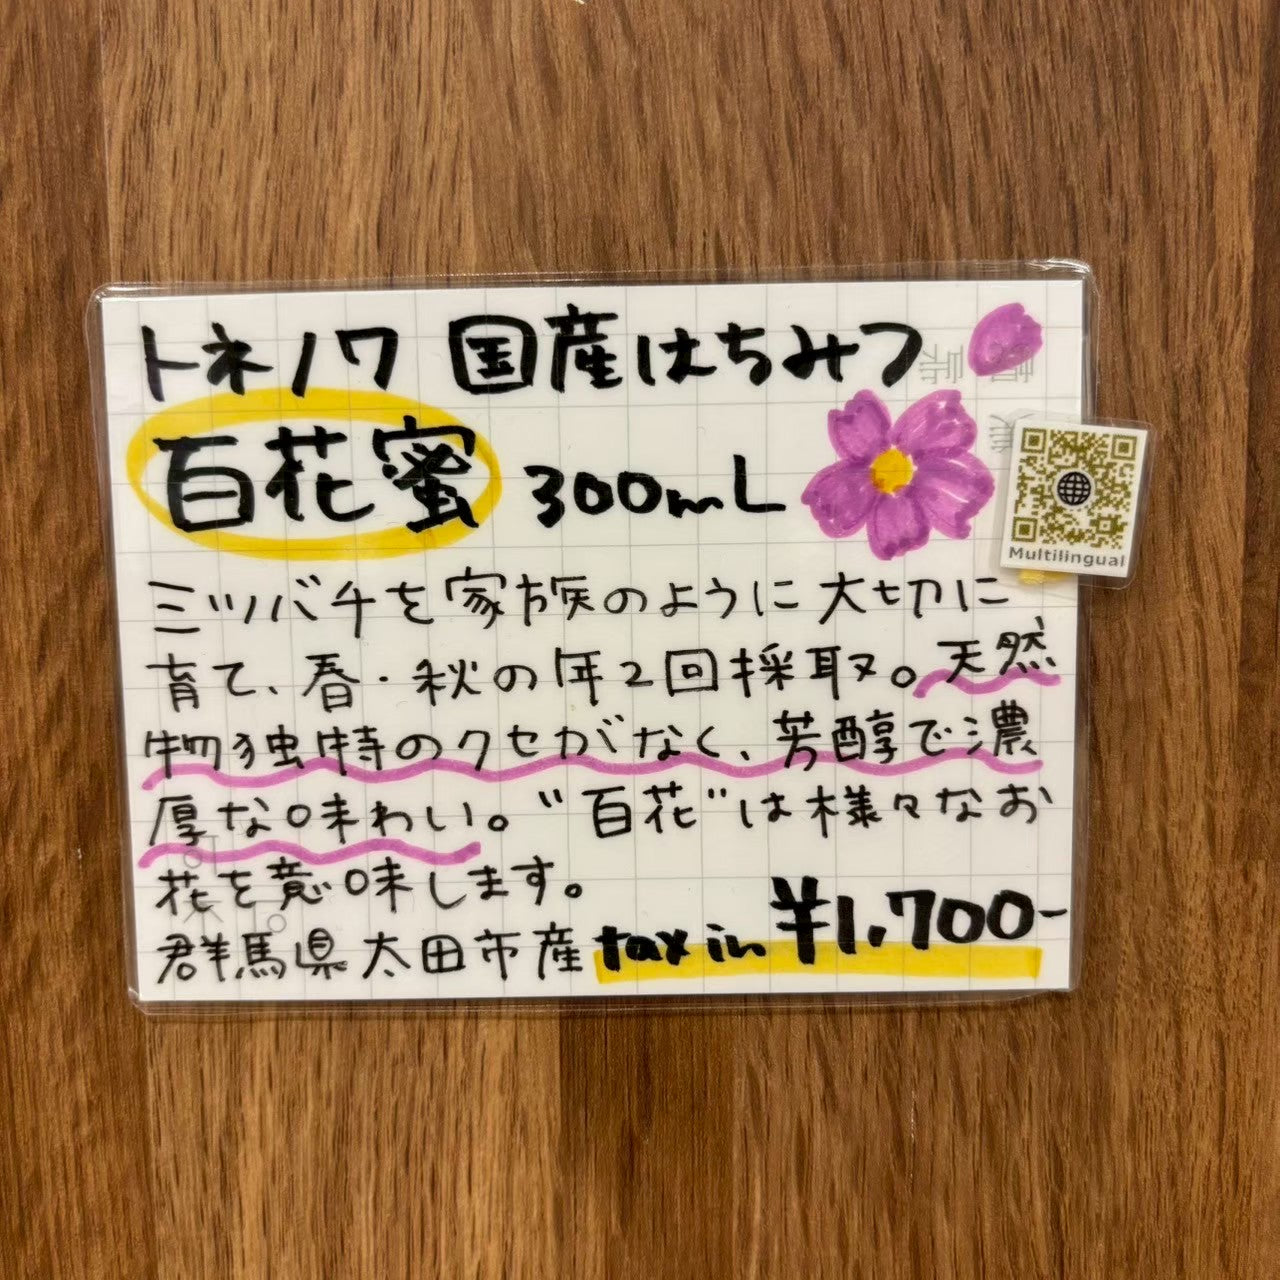 トネノワ 国産はちみつ
百花蜜 300mL
Multilingual
ミツバチを家族のように大切に
育て、春・秋の年2回採取。天然
物独特のクセがなく、芳醇で濃
厚な味わい。"百花"は様々なお
花を意味します。
群馬県太田市産 tax in ¥1,700-